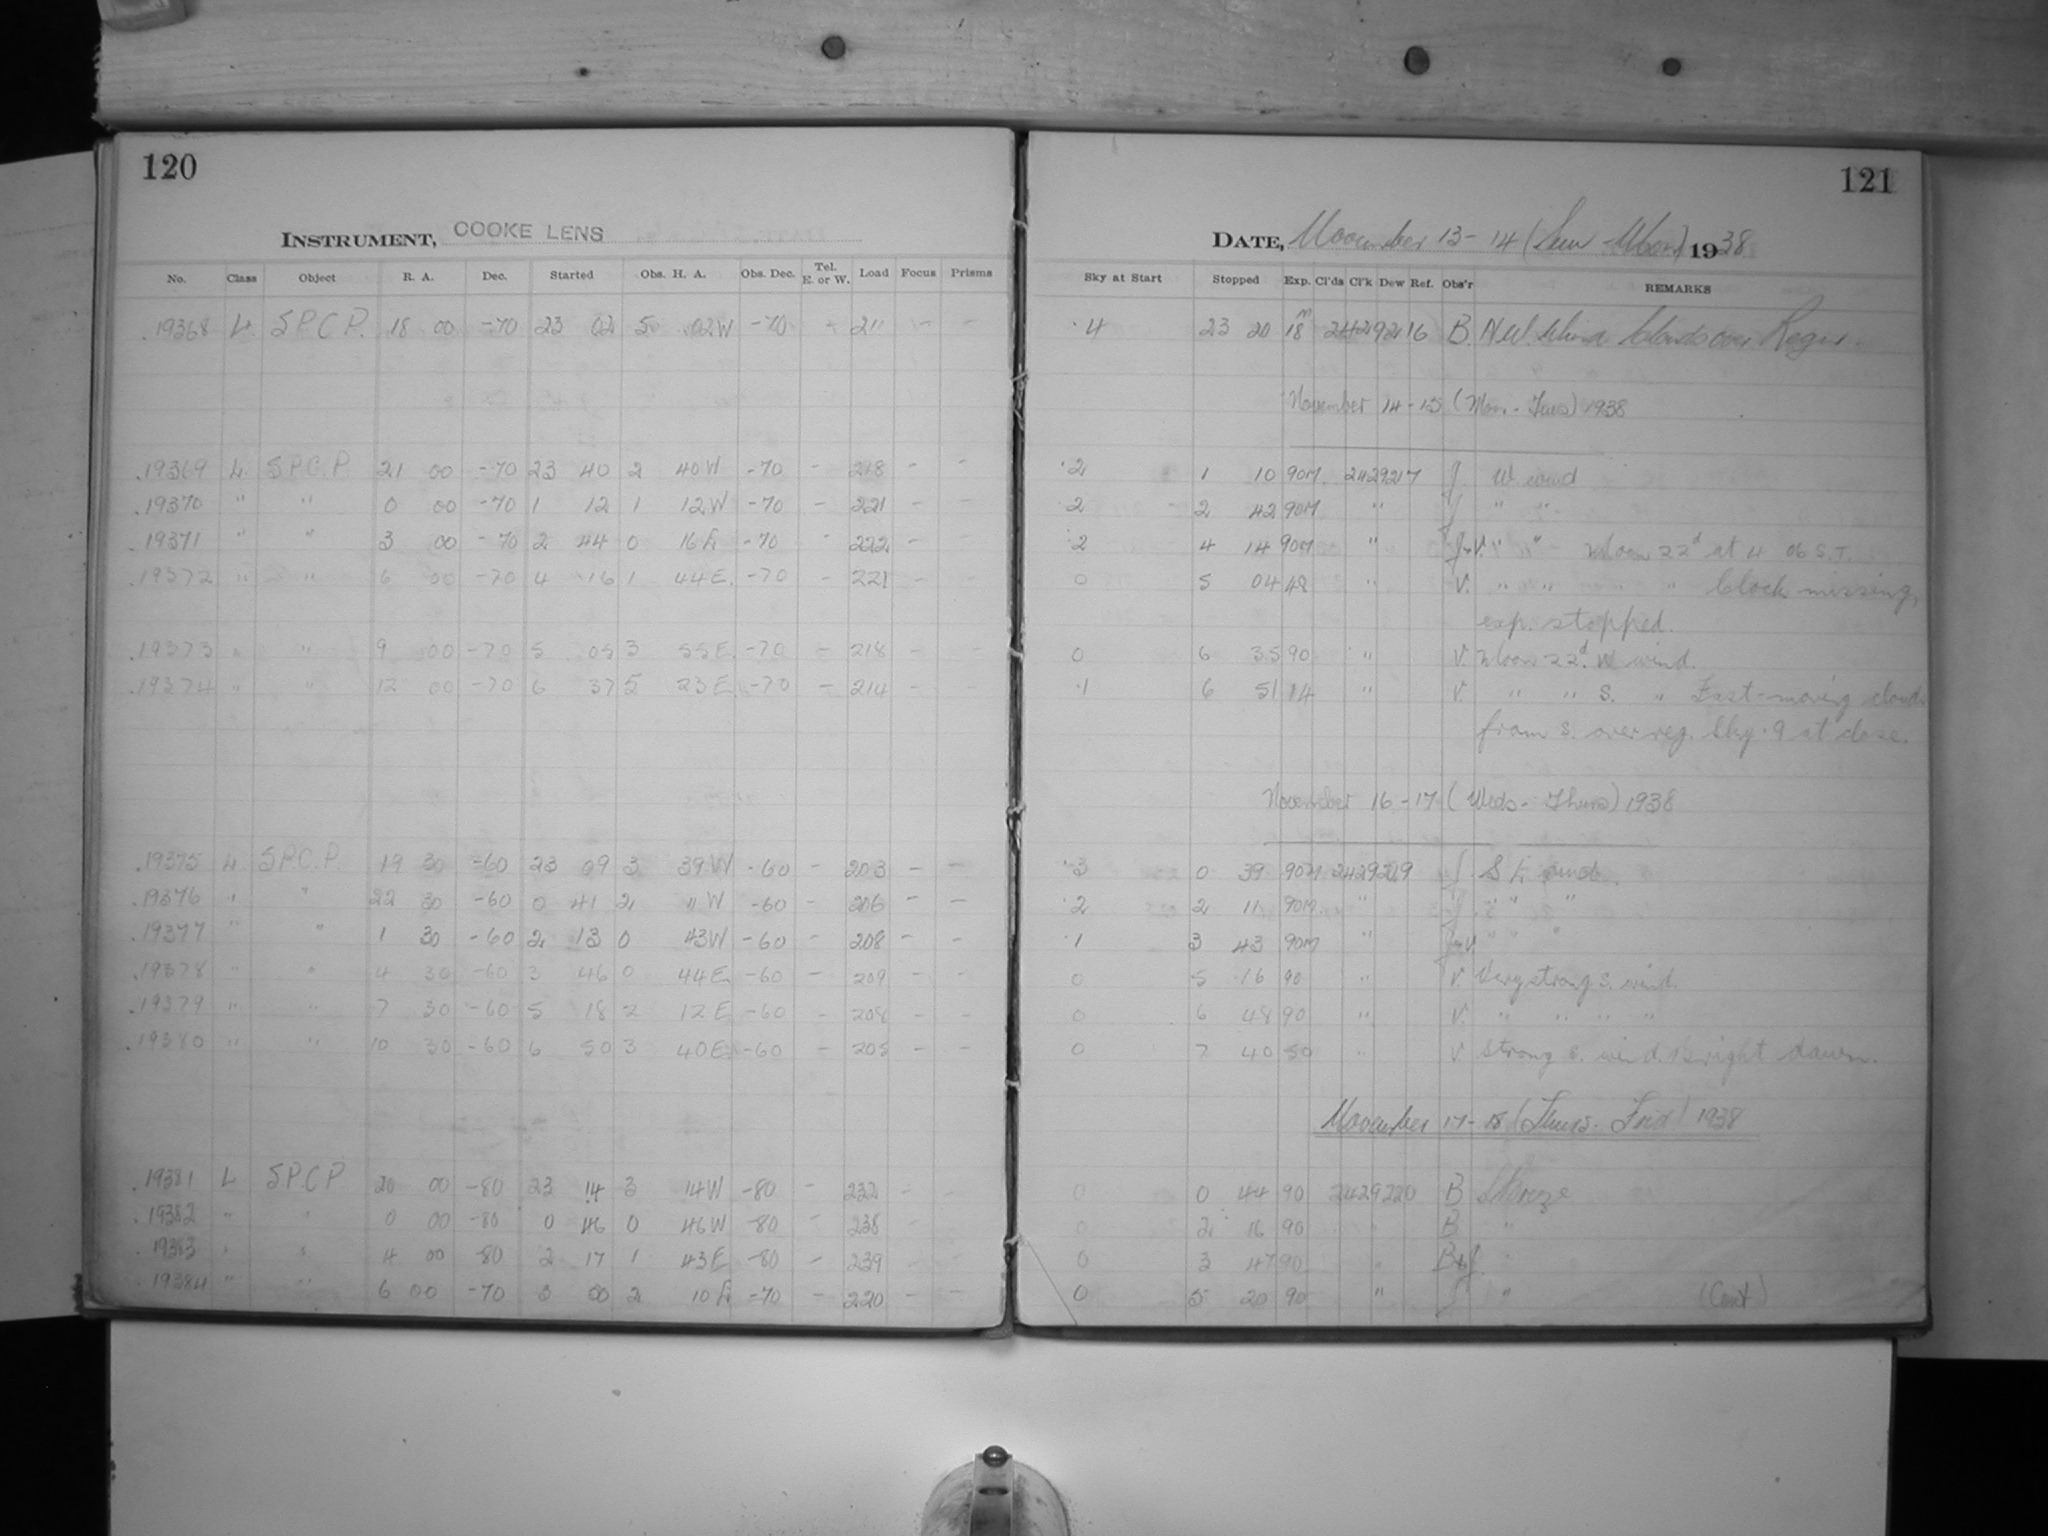 120
INSTRUMENT, COOKE LENS
No. Class Object R. A. Dec. Started Obs. H. A. Obs. Dec. Tel. E. or W. Load Focus Prisms
.19368 L S.P.C.P. 18 00 -70 23 02 5 02W -70 - 211 - -
.19369 L S.P.C.P. 21 00 -70 23 40 2 40W -70 - 218 - -
.19370 " " 0 00 -70 1 12 1 12W -70 - 221 - -
.19371 " " 3 00 -70 2 44 0 16E -70 - 222 - -
.19372 " " 6 00 -70 4 16 1 44E. -70 - 221 - -
.19373 " " 9 00 -70 5 05 3 55E. -70 - 218 - -
.19374 " " 12 00 -70 6 37 5 23E. -70 - 214 - -
.19375 L S.P.C.P. 19 30 -60 23 09 3 39W -60 - 203 - -
.19376 " " 22 30 -60 0 41 2 11W -60 - 206 - -
.19377 " " 1 30 -60 2 13 0 43W -60 - 208 - -
.19378 " " 4 30 -60 3 46 0 44E -60 - 209 - -
.19379 " " 7 30 -60 5 18 2 12E -60 - 208 - -
.19380 " " 10 30 -60 6 50 3 40E -60 - 205 - -
.19381 L S.P.C.P 20 00 -80 23 14 3 14W -80 - 232 - -
.19382 " " 0 00 -80 0 46 0 46W -80 - 238 - -
.19383 " " 4 00 -80 2 17 1 43E -80 - 239 - -
.19384 " " 6 00 -70 3 00 2 10E -70 - 220 - -
121
DATE, November 13-14 (Sun-Mon) 1938
Sky at Start Stopped Exp. Cl'ds Cl'k Dew Ref. Obs'r REMARKS
.4 23 20 18m 2429216 B. N.W. Wind Clouds over Region.
November 14-15 (Mon.-Tues) 1938
.2 1 10 90M 2429217 J. W wind
.2 2 42 90M " J " "
.2 4 14 90M " J+V. " " Moon 22d at 4 06 S.T.
0 5 04 48 " V. " " " " clock missing,
exp. stopped.
0 6 35 90 " V. Moon 22d. W wind.
.1 6 51 14 " V. " " S. " Fast-moving clouds
from S. over reg. Sky .9 at close.
November 16-17 (Weds-Thurs) 1938
.3 0 39 90M 2429219 J. S E wind.
.2 2 11 90M " J. " " "
.1 3 43 90M " J+V. " " "
0 5 16 90 " V. Very strong S. wind.
0 6 48 90 " V. " " " "
0 7 40 50 " V Strong S. wind. Bright dawn.
November 17-18 (Thurs-Frid) 1938
0 0 44 90 2429220 B S Breeze
0 2 16 90 " B "
0 3 47 90 " B+J. "
0 5 20 90 " J " (Cont)